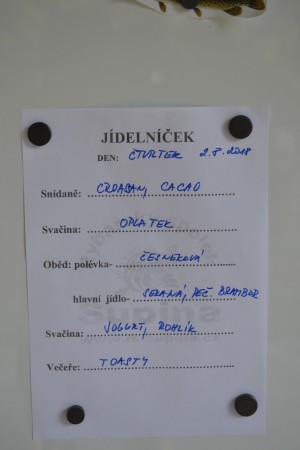 JÍDELNÍČEK
DEN: ČTVRTEK 2.8.2018
Snídaně: CROASAN, CACAO
Svačina: OPLATEK
Oběd: polévka- ČESNEKOVÁ
hlavní jídlo- SEKANÁ, PEČ. BRAMBOR
Svačina: JOGURT, ROHLÍK
Večeře: TOASTY